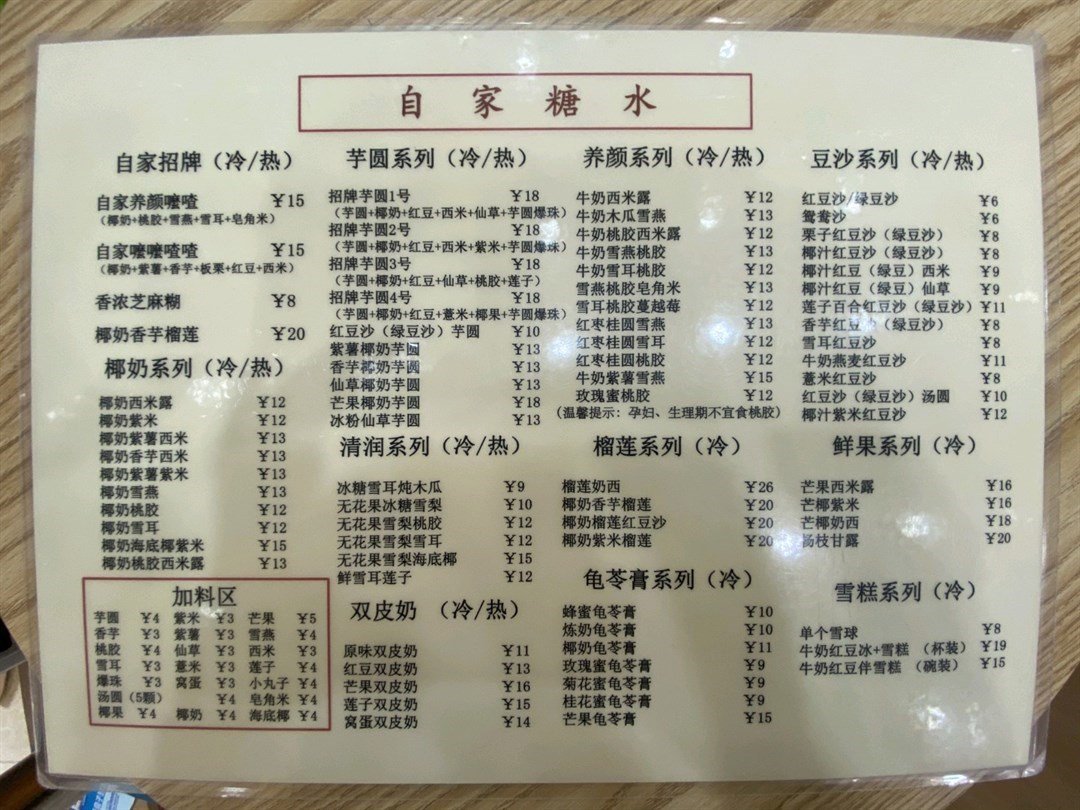 自家糖水
自家招牌（冷/热）
自家养颜嚒喳 ¥15
（椰奶+桃胶+雪燕+雪耳+皂角米）
自家嚒嚒喳喳 ¥15
（椰奶+紫薯+香芋+板栗+红豆+西米）
香浓芝麻糊 ¥8
椰奶香芋榴莲 ¥20
椰奶系列（冷/热）
椰奶西米露 ¥12
椰奶紫米 ¥12
椰奶紫薯西米 ¥13
椰奶香芋西米 ¥13
椰奶紫薯紫米 ¥13
椰奶雪燕 ¥13
椰奶桃胶 ¥12
椰奶雪耳 ¥12
椰奶海底椰紫米 ¥15
椰奶桃胶西米露 ¥13
加料区
芋圆 ¥4 紫米 ¥3 芒果 ¥5
香芋 ¥3 紫薯 ¥3 雪燕 ¥4
桃胶 ¥4 仙草 ¥3 西米 ¥3
雪耳 ¥3 薏米 ¥3 莲子 ¥4
爆珠 ¥3 窝蛋 ¥3 小丸子 ¥4
汤圆（5颗） ¥4 皂角米 ¥4
椰果 ¥4 椰奶 ¥4 海底椰 ¥4
芋圆系列（冷/热）
招牌芋圆1号 ¥18
（芋圆+椰奶+红豆+西米+仙草+芋圆爆珠）
招牌芋圆2号 ¥18
（芋圆+椰奶+红豆+西米+紫米+芋圆爆珠）
招牌芋圆3号 ¥18
（芋圆+椰奶+红豆+仙草+桃胶+莲子）
招牌芋圆4号 ¥18
（芋圆+椰奶+红豆+薏米+椰果+芋圆爆珠）
红豆沙（绿豆沙）芋圆 ¥10
紫薯椰奶芋圆 ¥13
香芋椰奶芋圆 ¥13
仙草椰奶芋圆 ¥13
芒果椰奶芋圆 ¥18
冰粉仙草芋圆 ¥13
清润系列（冷/热）
冰糖雪耳炖木瓜 ¥9
无花果冰糖雪梨 ¥10
无花果雪梨桃胶 ¥12
无花果雪梨雪耳 ¥12
无花果雪梨海底椰 ¥15
鲜雪耳莲子 ¥12
双皮奶 （冷/热）
原味双皮奶 ¥11
红豆双皮奶 ¥13
芒果双皮奶 ¥16
莲子双皮奶 ¥15
窝蛋双皮奶 ¥14
养颜系列（冷/热）
牛奶西米露 ¥12
牛奶木瓜雪燕 ¥13
牛奶桃胶西米露 ¥12
牛奶雪燕桃胶 ¥13
牛奶雪耳桃胶 ¥12
雪燕桃胶皂角米 ¥13
雪耳桃胶蔓越莓 ¥12
红枣桂圆雪燕 ¥13
红枣桂圆雪耳 ¥12
红枣桂圆桃胶 ¥12
牛奶紫薯雪燕 ¥15
玫瑰蜜桃胶 ¥12
（温馨提示：孕妇、生理期不宜食桃胶）
榴莲系列（冷）
榴莲奶西 ¥26
椰奶香芋榴莲 ¥20
椰奶榴莲红豆沙 ¥20
椰奶紫米榴莲 ¥20
龟苓膏系列（冷）
蜂蜜龟苓膏 ¥10
炼奶龟苓膏 ¥10
椰奶龟苓膏 ¥11
玫瑰蜜龟苓膏 ¥9
菊花蜜龟苓膏 ¥9
桂花蜜龟苓膏 ¥9
芒果龟苓膏 ¥15
豆沙系列（冷/热）
红豆沙/绿豆沙 ¥6
鸳鸯沙 ¥6
栗子红豆沙（绿豆沙） ¥8
椰汁红豆沙（绿豆沙） ¥8
椰汁红豆（绿豆）西米 ¥9
椰汁红豆（绿豆）仙草 ¥9
莲子百合红豆沙（绿豆沙） ¥11
香芋红豆沙（绿豆沙） ¥8
雪耳红豆沙 ¥8
牛奶燕麦红豆沙 ¥11
薏米红豆沙 ¥8
红豆沙（绿豆沙）汤圆 ¥10
椰汁紫米红豆沙 ¥12
鲜果系列（冷）
芒果西米露 ¥16
芒椰紫米 ¥16
芒椰奶西 ¥18
杨枝甘露 ¥20
雪糕系列（冷）
单个雪球 ¥8
牛奶红豆冰+雪糕 （杯装） ¥19
牛奶红豆伴雪糕 （碗装） ¥15